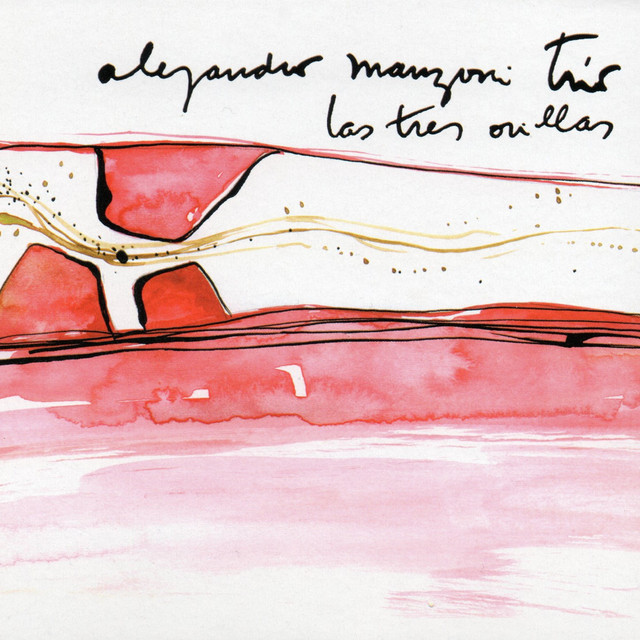 alejandro manzoni trio
las tres orillas